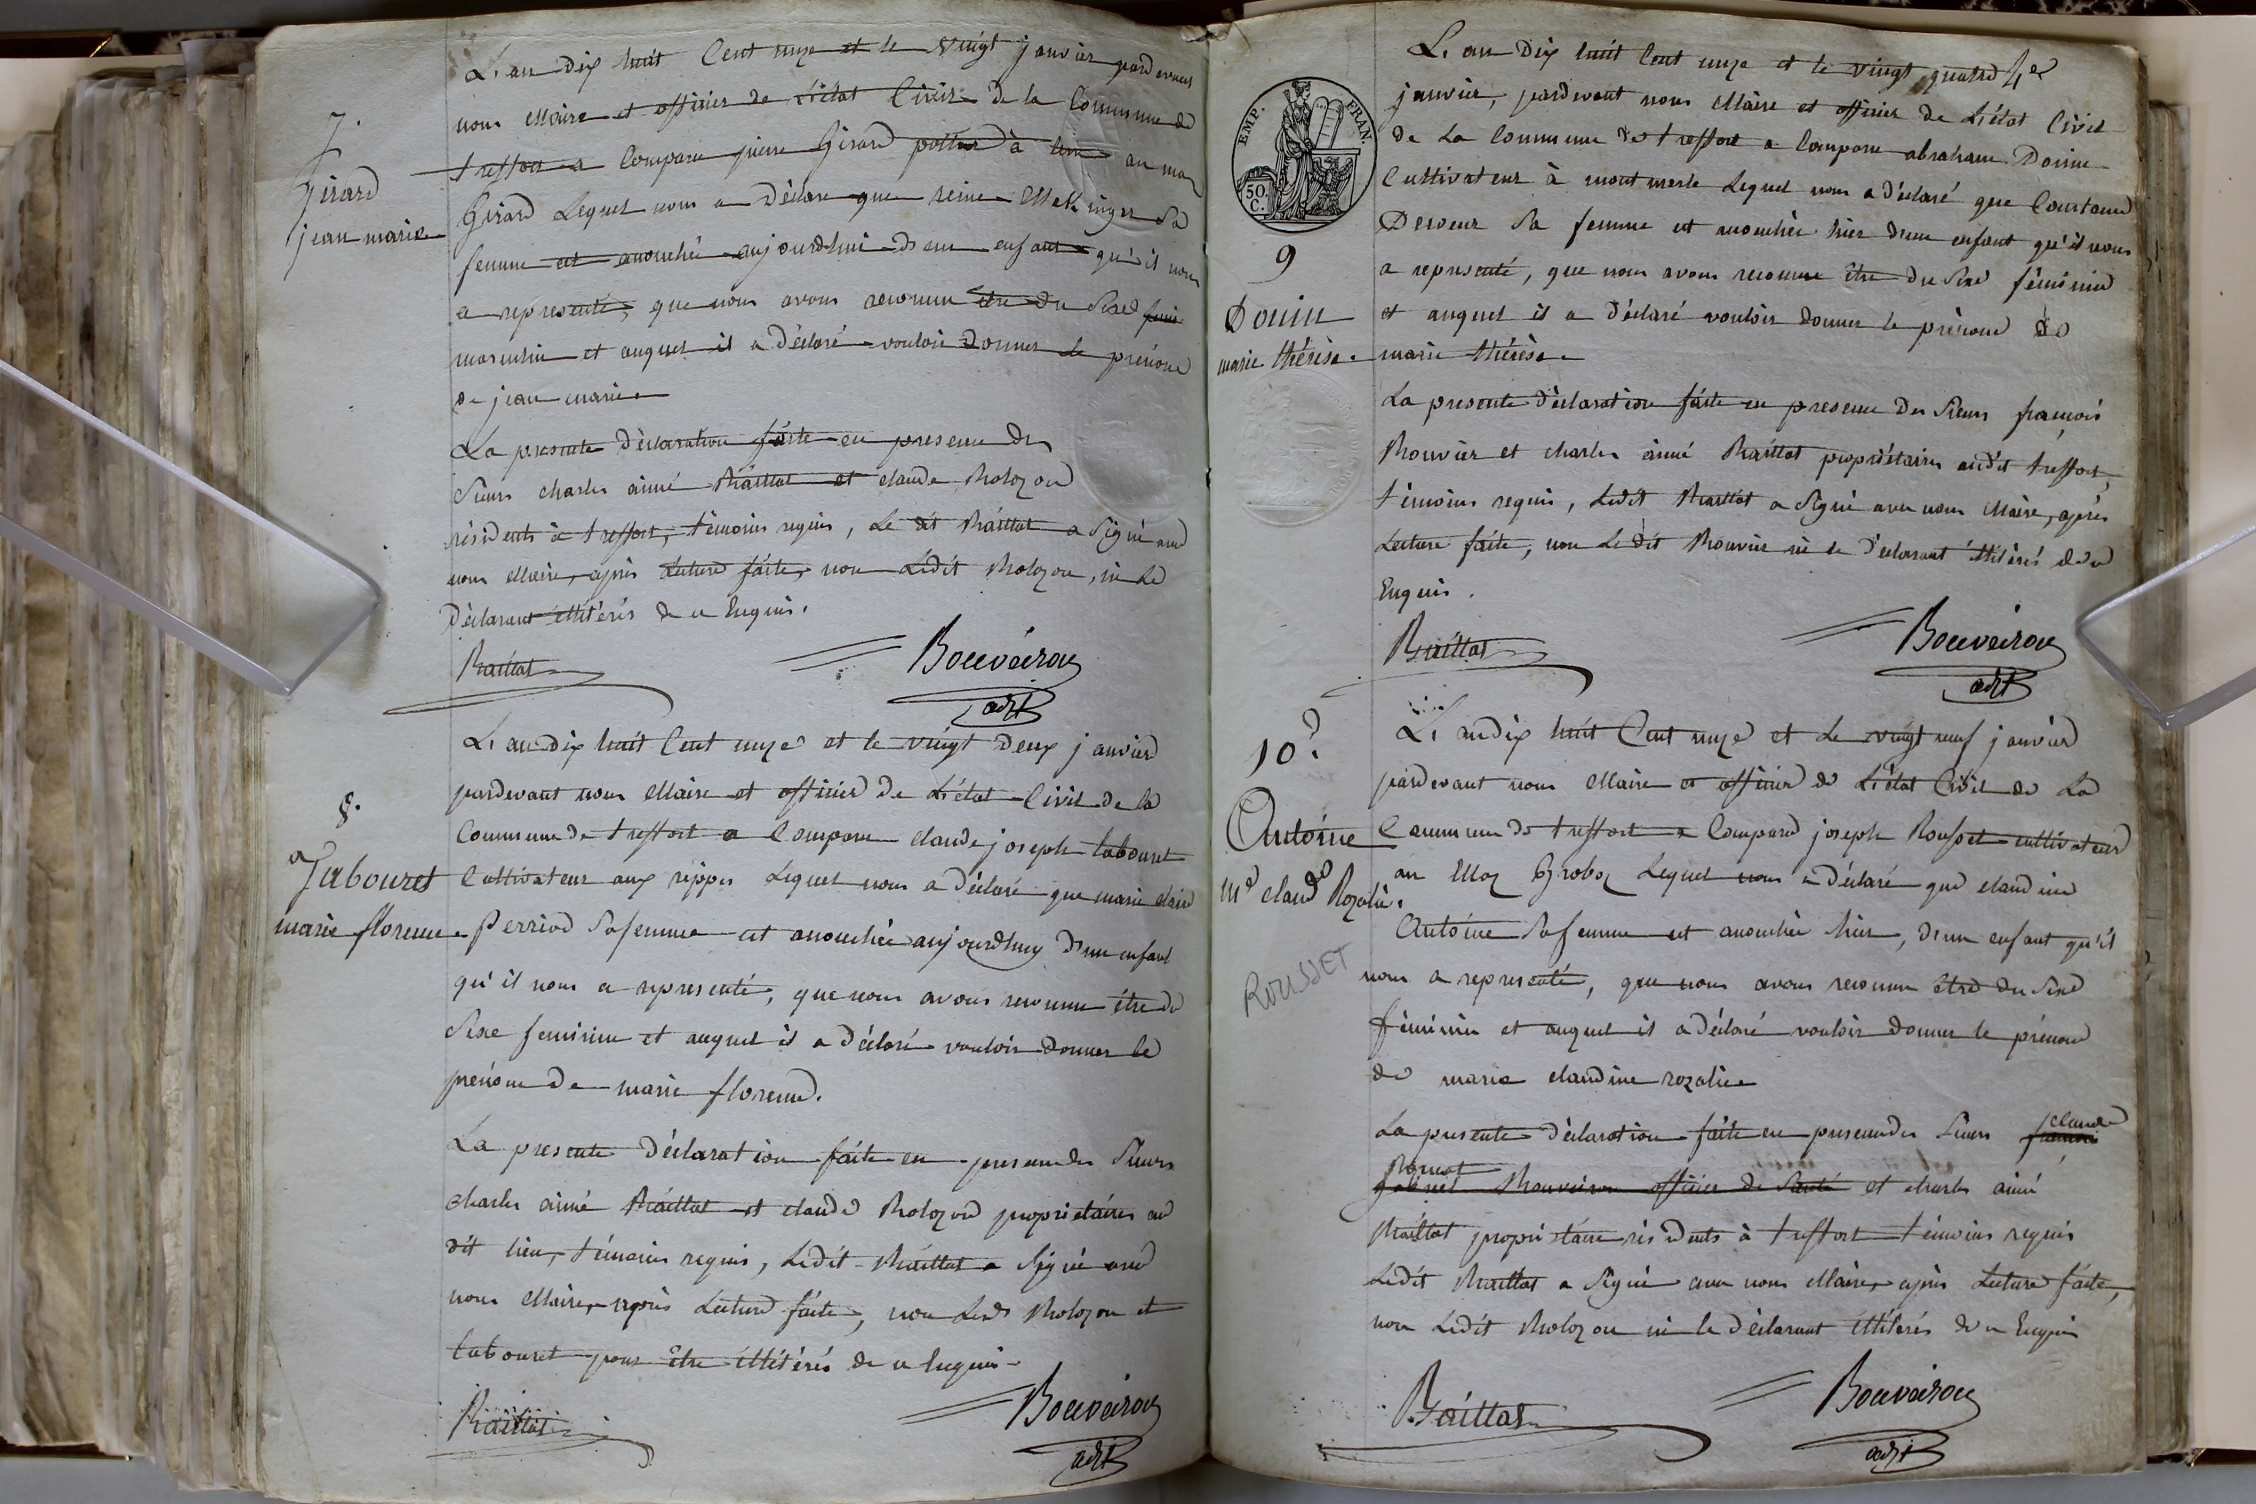 7.
Girard
jean marie
L'an dix huit Cent onze et le vingt janvier pardevant
nous Maire et officier de L'état Civil de la Commune de
treffort a Comparu pierre Girard potier à au mas
Girard Lequel nous a Déclaré que reine Sa
femme est accouchée aujourdhui d'un enfant qu'il nous
a representé, que nous avons reconnu être du Sexe
masculin et auquel il a Déclaré vouloir Donner le prénom
de jean marie
La presente Déclaration faite en presence des
Sieurs charles aimé Raillat et claude Rolozon
résidents à treffort, témoins requis, Le dit Raillat a Signé avec
nous Maire, après Lecture faite, non Ledit Rolozon, ni Le
Déclarant illitérés de ce Enquis.
Raillat
Bouveiron
adjt
8.
Tabouret
marie florence
L'an dix huit Cent onze et le vingt Deux janvier
pardevant nous Maire et officier de L'état Civil de la
Commune de treffort a Comparu claude joseph tabouret
Cultivateur aux rippes Lequel nous a Déclaré que marie claire
Perriod Sa femme est accouchée aujourdhuy d'un enfant
qu'il nous a representé, que nous avons reconnu être du
Sexe feminin et auquel il a Déclaré vouloir Donner le
prénom De marie florence.
La presente Déclaration faite en presence des Sieurs
charles aimé Raillat et claude Rolozon propriétaires au
dit lieu, témoins requis, Ledit Raillat a Signé avec
nous Maire, après Lecture faite, non Lesds Rolozon et
tabouret pour être illitérés de ce Enquis
Raillat
Bouveiron
adjt
EMP. FRAN.
50 C.
9
Donin
marie thérèse
L'an Dix huit Cent onze et le vingt quatre
janvier, pardevant nous Maire et officier de L'état Civil
de La Commune de treffort a Comparu abraham Donin
Cultivateur à montmerle Lequel nous a déclaré que Constance
Deroeur Sa femme est accouchée hier d'un enfant qu'il nous
a representé, que nous avons reconnu être du Sexe féminin
et auquel il a Déclaré vouloir donner le prénom de
marie thérèse
La presente Déclaration faite en presence des Sieurs françois
Rouvier et charles aimé Raillat propriétaires audit treffort,
témoins requis, Ledit Raillat a Signé avec nous Maire, après
Lecture faite, non Le dit Rouvier ni le Déclarant illitérés de ce
Enquis.
Raillat
Bouveiron
adjt
10.
Antoine
me claude Rozalie.
ROUSSET
L'an dix huit Cent onze et Le vingt neuf janvier
pardevant nous Maire et officier de L'état Civil de La
Commune de treffort a Comparu joseph Rousset cultivateur
au Lequel nous a déclaré que claudine
Antoine Sa femme est accouchée hier, d'un enfant qu'il
nous a representé, que nous avons reconnu être du Sexe
féminin et auquel il a déclaré vouloir donner le prénom
de marie claudine rozalie
La presente Déclaration faite en presence des Sieurs claude
officier de Santé et charles aimé
Raillat propriétaire résidents à treffort témoins requis
Ledit Raillat a Signé avec nous Maire, après Lecture faite,
non Ledit Rolozon ni le déclarant illitérés de ce Enquis
Raillat
Bouveiron
adjt